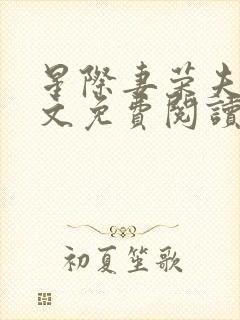 星際妻荣夫
文免費閱讀
初夏笙歌